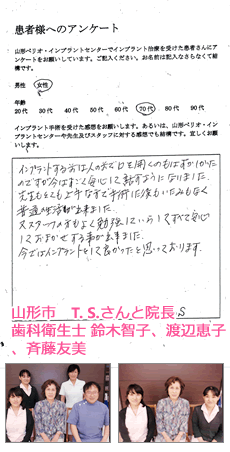 患者様へのアンケート
山形ペリオ・インプラントセンターでインプラント治療を受けた患者さんにアンケートをお願いしています。ご記入ください。お名前は記入なさらなくて結構です。
男性 女性
年齢
20代 30代 40代 50代 60代 70代 80代 90代
インプラント手術を受けた感想をお願いします。あるいは、山形ペリオ・インプラントセンターや先生及びスタッフに対する感想でも結構です。宜しくお願いします。
インプラントする前は人の前で口を開くのもはずかしかった
のですが今はすごく安心して話すようになりました。
先生もとても上手なので手術した後もいたみもなく
普通の生活が出来ました。
又スタッフの方もよく勉強していらしてすべて安心
しておまかせする事が出来ました。
今ではインプラントをして良かったと思っております。
S
山形市 T.S.さんと院長、
歯科衛生士 鈴木智子、渡辺恵子
、斉藤友美